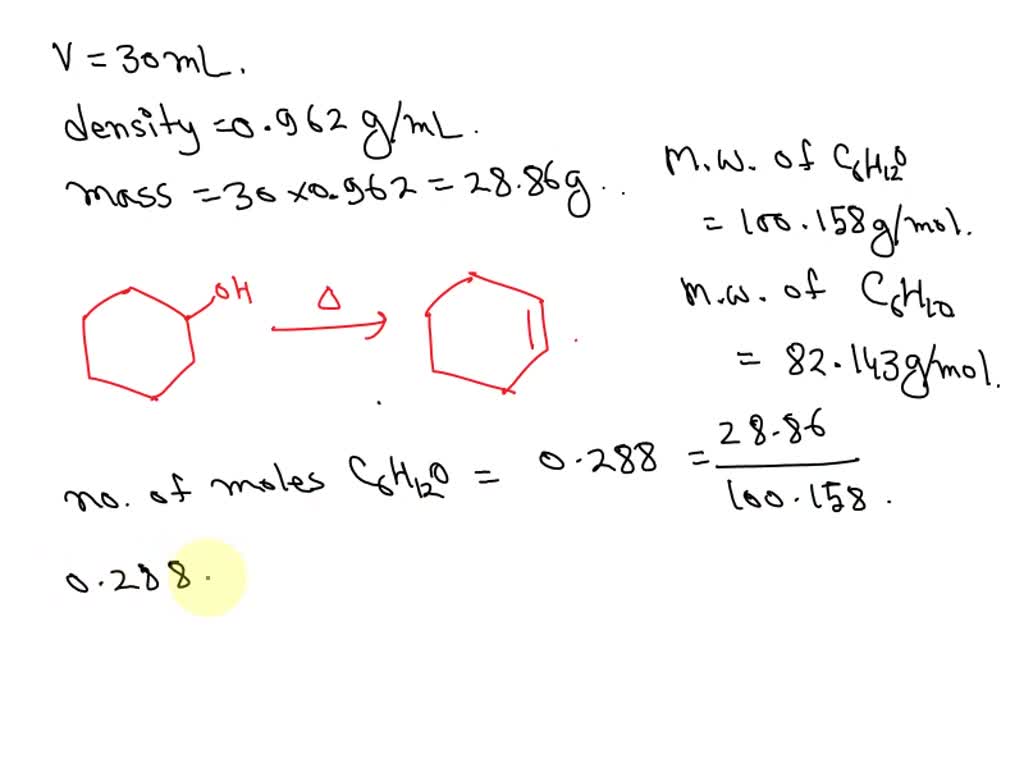 V = 30 mL.
density = 0.962 g/mL.
mass = 30 × 0.962 = 28.86 g..
M.W. of C₆H₁₂O
= 100.158 g/mol.
M.W. of C₆H₁₀
= 82.143 g/mol.
OH
Δ
no. of moles C₆H₁₂O = 0.288 = 28.86
100.158.
0.288.